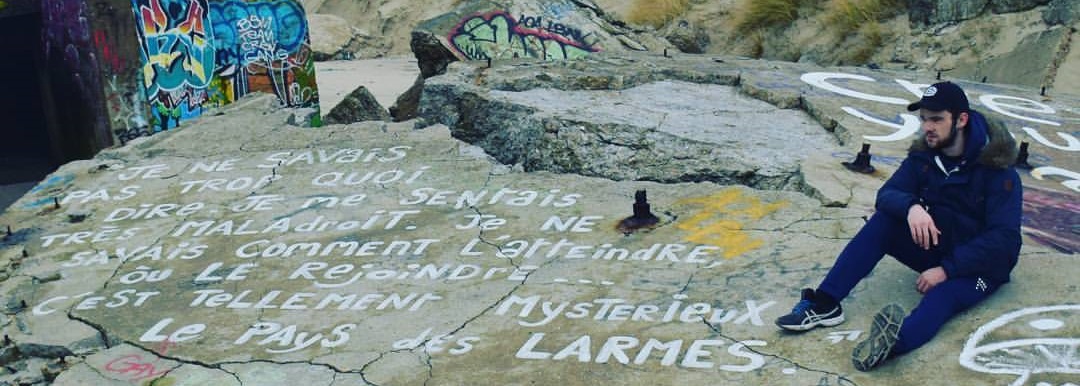 JE NE SAVAIS
PAS TROP QUOI
DIRE. JE ME SENTAIS
TRÈS MALADROIT. JE NE
SAVAIS COMMENT L'ATTEINDRE,
OÙ LE REJOINDRE ...
C'EST TELLEMENT MYSTERIEUX
LE PAYS des LARMES. "